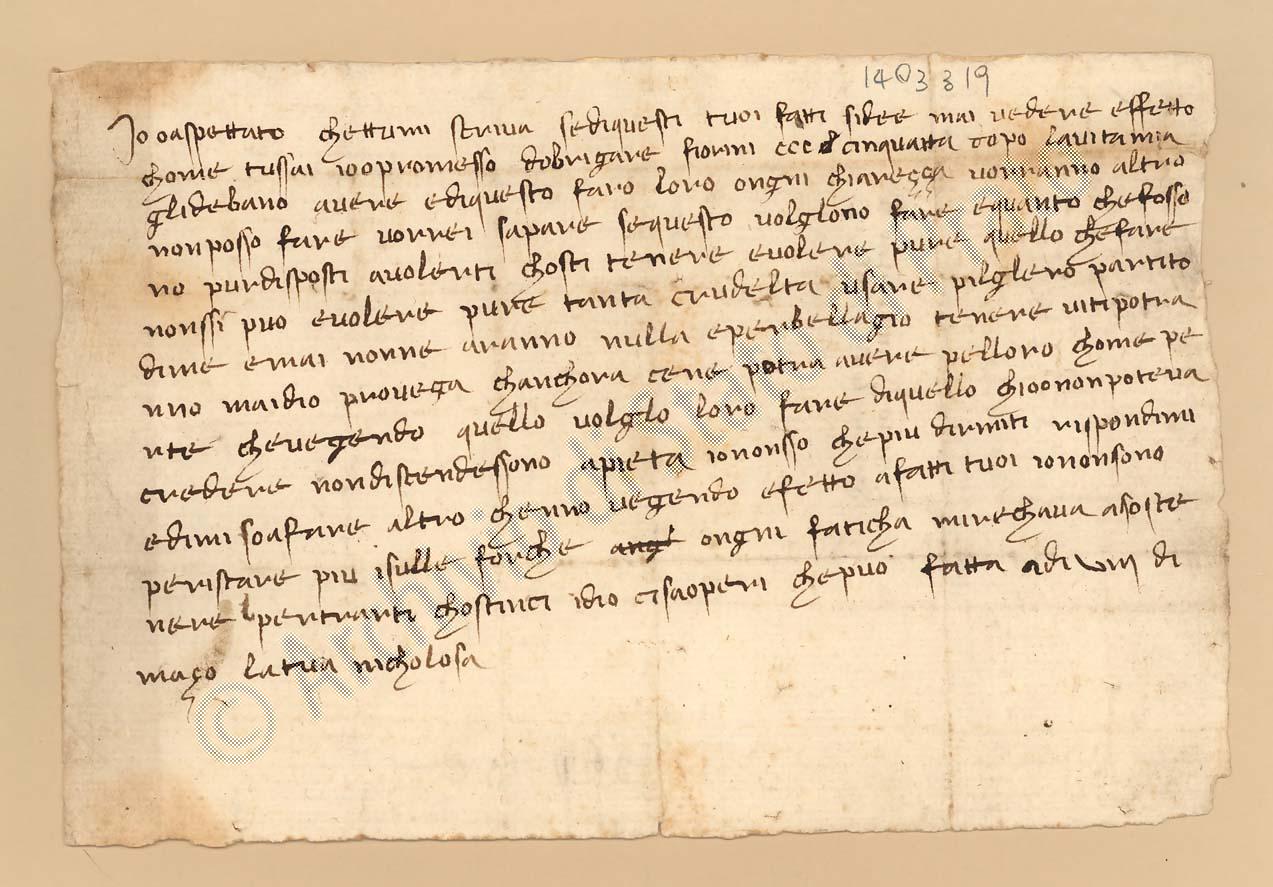 1403319
Io oaspettato chettumi scriva sediquesti tuoi fatti sidee mai vedere effetto
chome tussai ioopromesso dobrigare fiorini cccº cinquatta dopo lavitamia
glidebano avere ediquesto faro loro ongni chiareçça vorranno altro
nonposso fare vorrei sapare sequesto volglono fare equanto chefosso
no purdisposti avolerti chosti tenere evolere pure quello chefare
nonssi puo evolere pure tanta crudelta usare pilglero partito
dime emai nonne aranno nulla eperbellagio tenere vitipotra
nno maidio provega chanchora cene potra avere pelloro chome pe
rte chevegendo quello volglo loro fare diquello chioononpoteva
credere nondiscendessono apieta iononsso chepiu dirmiti rispondimi
edimi soafare altro chenno vegendo efetto afatti tuoi iononsono
peristare piu isulle forche ongni faticha mirechava asoste
nere pertrarti chostinci idio cisaoperi chepuo fatta adi viii di
maço latua nicholosa
© Archivio di Stato di Prato